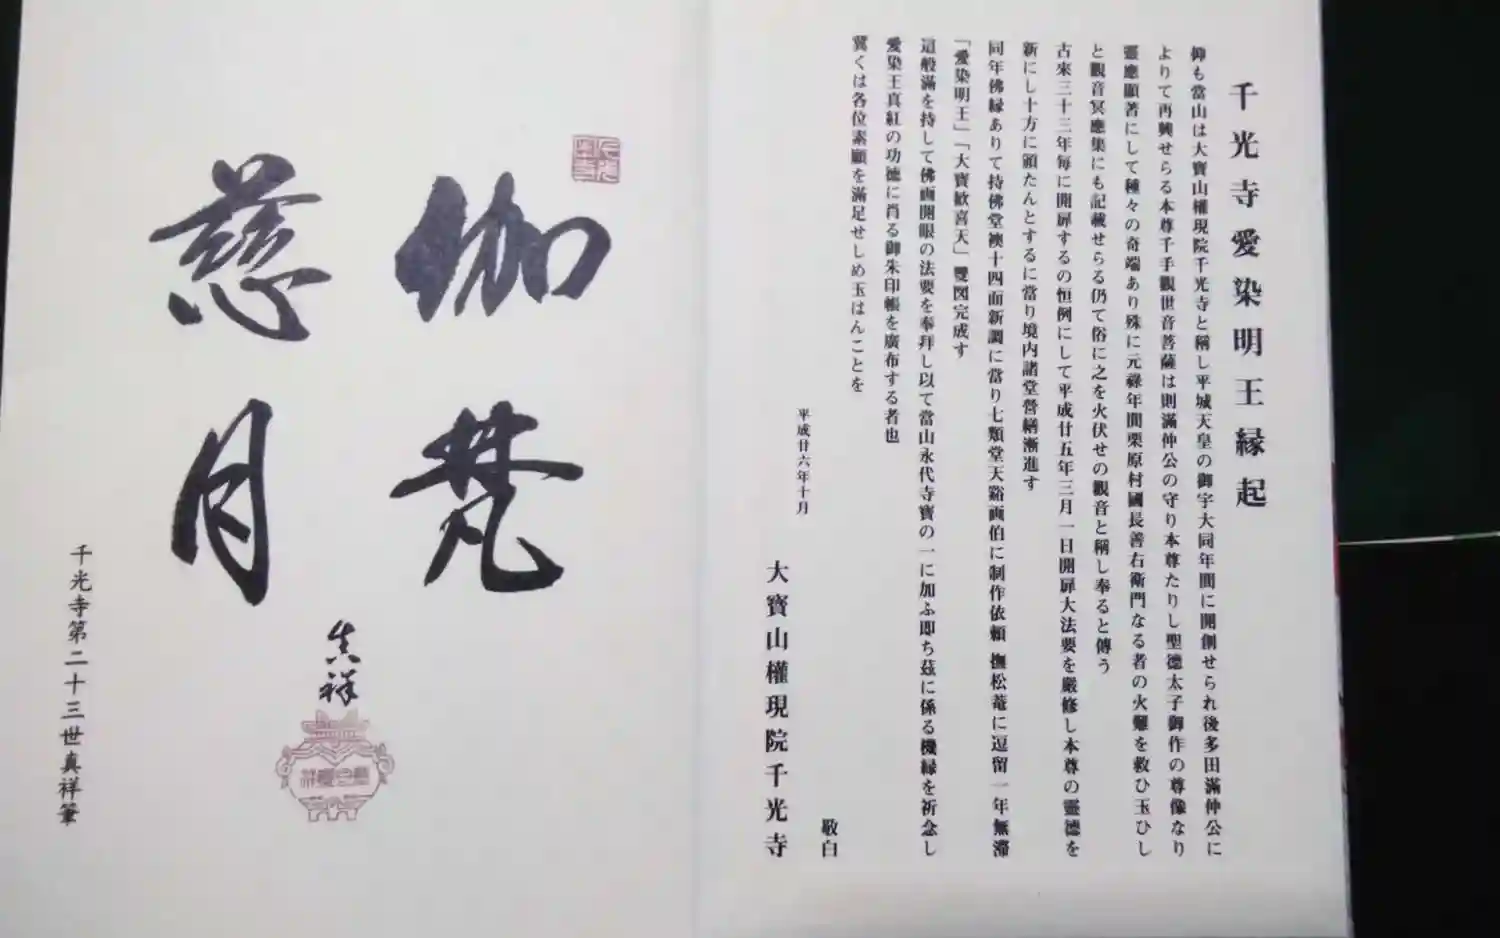 千光寺愛染明王縁起
仰も當山は大寶山權現院千光寺と稱し平城天皇の御宇大同年間に開創せられ後多田滿仲公に
よりて再興せらる本尊千手觀世音菩薩は則滿仲公の守り本尊たりし聖德太子御作の尊像なり
靈應顯著にして種々の奇端あり殊に元祿年間栗原村國長善右衛門なる者の火難を救ひ玉ひし
と觀音冥應集にも記載せらる仍て俗に之を火伏せの觀音と稱し奉ると傳う
古來三十三年每に開扉するの恒例にして平成廿五年三月一日開扉大法要を嚴修し本尊の靈德を
新にし十方に頒たんとするに當り境内諸堂營繕漸進す
同年佛緣ありて持佛堂襖十四面新調に當り七類堂天谿画伯に制作依賴 撫松菴に逗留一年無滯
「愛染明王」「大寶歡喜天」雙図完成す
這般滿を持して佛画開眼の法要を奉拜し以て當山永代寺寶の一に加ふ即ち茲に係る機緣を祈念し
愛染王真紅の功德に肖る御朱印帳を廣布する者也
冀くは各位素願を滿足せしめ玉はんことを
平成廿六年十月
敬白
大寶山權現院千光寺
伽梵
慈月
真祥
千光寺第二十三世真祥筆